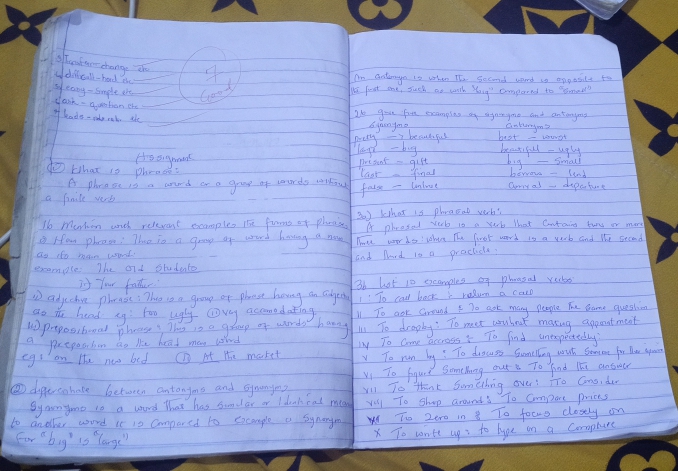 3 Transfer - change etc
4 difficult - hard etc
5 easy - simple etc
6 ask - question etc
7 Good
Assignment
What is phrase:
A phrase is a word or a group of words without
a finite verb
1b Mention and relevant examples the forms of phrase
Noun phrase: This is a group of word having a noun
as its main word:
example: The old students
ii) Your father:
ii) adjective phrase: This is a group of phrase having an adjective
as the head eg: too ugly (ii) very accomodating
iii) prepositional phrase: This is a group of words having
a preposition as the head main word
eg: on the new bed (ii) At the market
② differentiate between antonyms and Synonyms
Synonyms is a word that has similar or Identical meaning
to another word it is compared to example a Synonym
For "big" is "large"
An antonym is when the second word is opposite to
the first one, such as with "big" compared to "small"
2b give five examples of synonyms and antonyms
Synonyms antonyms
pretty → beautiful best - worst
large - big beautiful - ugly
present - gift big - small
last - final borrow - lend
false - untrue arrival - departure
3a) What is phrasal verb:
A phrasal verb is a verb that contains two or more
words: where the first word is a verb and the second
and third is a
3b list 10 examples of phrasal verbs
i: To call back: return a call
ii To ask around: To ask many people the same question
iii To dropby: To meet without making appointment
iv To come across: To find unexpectedly:
v To run by: To discuss something with someone for their
vi To figure something out: To find the answer
vii To think something over: To consider
viii To shop around: To compare prices
ix To Zero in: To focus closely on
x To write up: to type on a computer